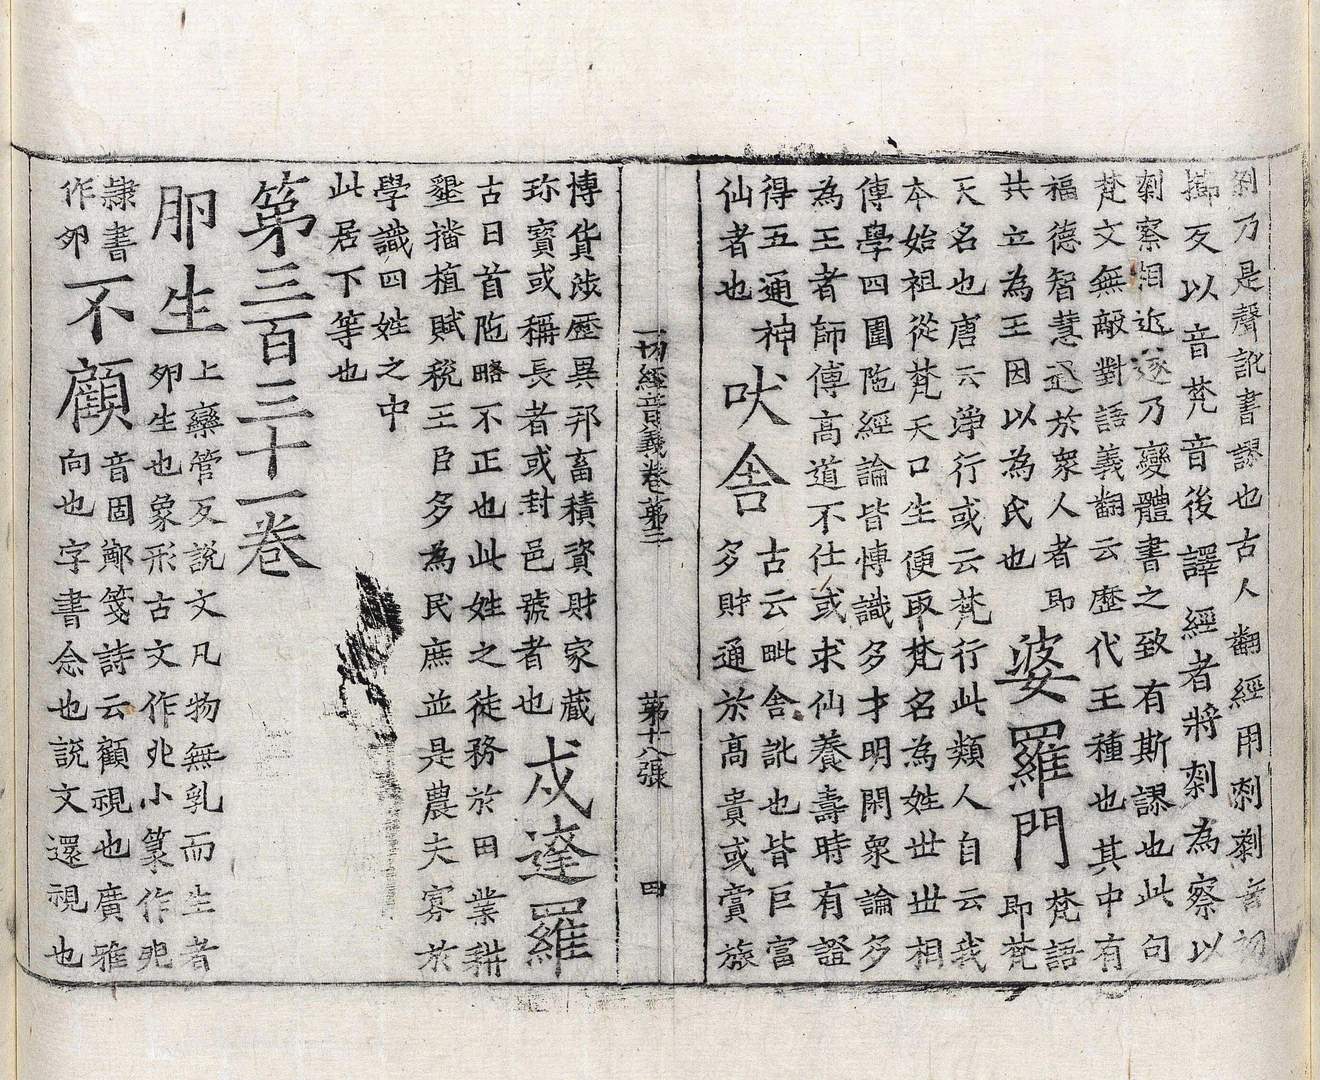 剎乃是聲訛書謬也古人翻經用剌剎音初
擳反以音梵音後譯經者將剌為察以
剎察相近遂乃變體書之致有斯謬也此句
梵文無敵對語義翻云歷代王種也其中有
福德智慧迊於衆人者即
共立為王因以為氏也
婆羅門
梵語
即梵
天名也唐云淨行或云梵行此類人自云我
本始祖從梵天口生便取梵名為姓世世相
傳學四圍陁經論皆愽識多才明閑衆論多
為王者師傅高道不仕或求仙養壽時有證
得五通神
仙者也
吠舍
古云毗舍訛也皆巨富
多財通於高貴或賞旅
一切經音義卷第三 第十八張 四
博貨涉歷異邦畜積資財家藏
珎寳或稱長者或封邑號者也
戍達羅
古日首陁略不正也此姓之徒務於田業耕
墾播植賦税王臣多為民庶並是農夫寡於
學識四姓之中
此居下等也
第三百三十一卷
夘生
上欒管反說文凡物無乳而生者
夘生也象形古文作小篆作
隷書
作夘
不顧
音固鄭箋詩云顧視也廣雅
向也字書念也說文還視也